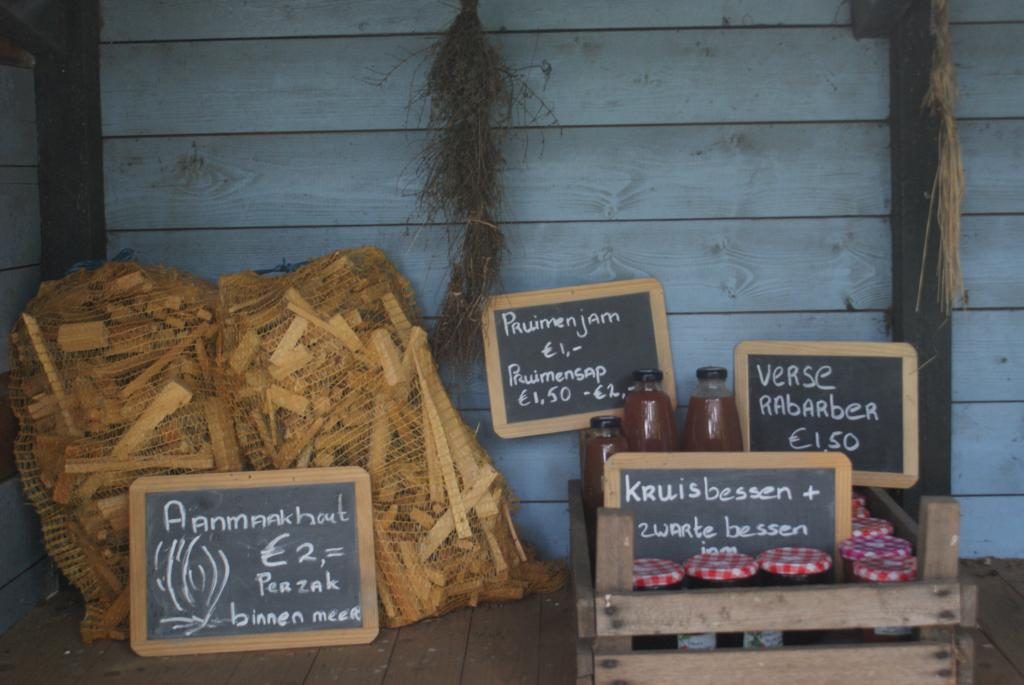 Pruimenjam
€1,-
Pruimensap
€1,50 -€2,-
VERSE
RABARBER
€1,50
Kruisbessen +
zwarte bessen
jam
Aanmaakhout
€2,=
Per zak
binnen meer